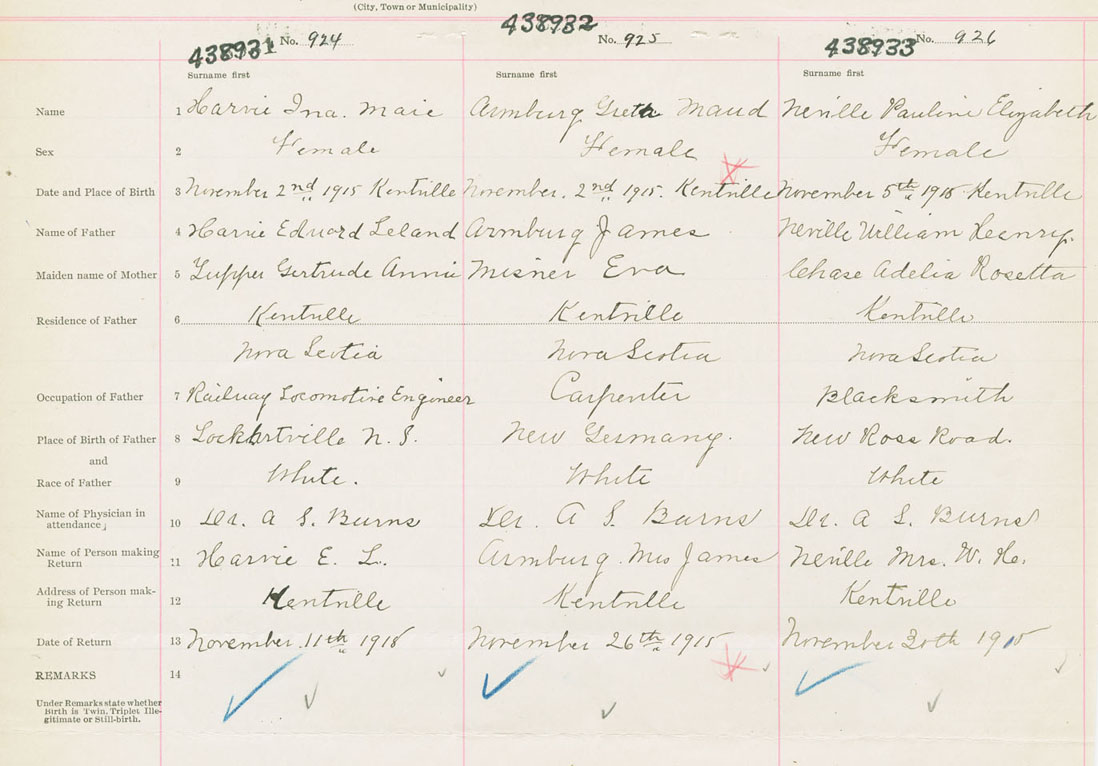 (City, Town or Municipality)
438931 No. 924 438932 No. 925 438933 No. 926
Surname first Surname first Surname first
Name 1 Harvie Ina. Maie Armburg Greta Maud Neville Pauline Elizabeth
Sex 2 Female Female Female
Date and Place of Birth 3 November 2nd 1915 Kentville November. 2nd 1915. Kentville November 5th 1915 Kentville
Name of Father 4 Harvie Edward Leland Armburg James Neville William Henry.
Maiden name of Mother 5 Tupper Gertrude Annie Misner Eva Chase Adelia Rosetta
Residence of Father 6 Kentville Kentville Kentville
Nova Scotia Nova Scotia Nova Scotia
Occupation of Father 7 Railway Locomotive Engineer Carpenter Blacksmith
Place of Birth of Father 8 Lockhartville N. S. New Germany. New Ross Road.
and
Race of Father 9 White. White White
Name of Physician in
attendance, 10 Dr. A S. Burns Dr. A S. Burns Dr. A S. Burns
Name of Person making
Return 11 Harvie E. L. Armburg. Mrs James Neville Mrs. W. H.
Address of Person mak-
ing Return 12 Kentville Kentville Kentville
Date of Return 13 November. 11th 1915 November 26th 1915 November 30th 1915
REMARKS 14
Under Remarks state whether
Birth is Twin, Triplet Ille-
gitimate or Still-birth.